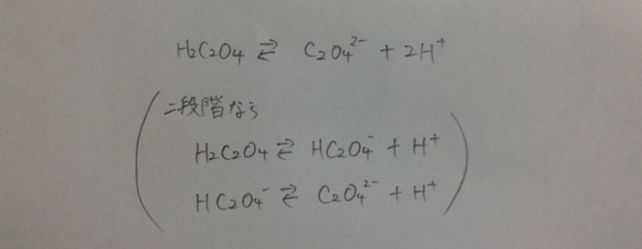 H₂C₂O₄ ⇄ C₂O₄²⁻ + 2H⁺
(二段階なら
H₂C₂O₄ ⇄ HC₂O₄⁻ + H⁺
HC₂O₄⁻ ⇄ C₂O₄²⁻ + H⁺)